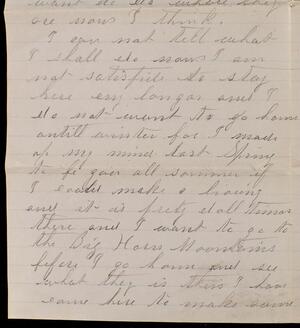 want to do where they
are now I think.
I can not tell what
I shall do now I am
not satisfied to stay
here eny longer and I
do not want to go home
untill winter for I made
up my mind last Spring
to be gon all sommer if
I could make a living
and it is prety dull times
there and I want to go to
the Big Horn Moontins
before I go home and see
what they is thire I have
come here to make some